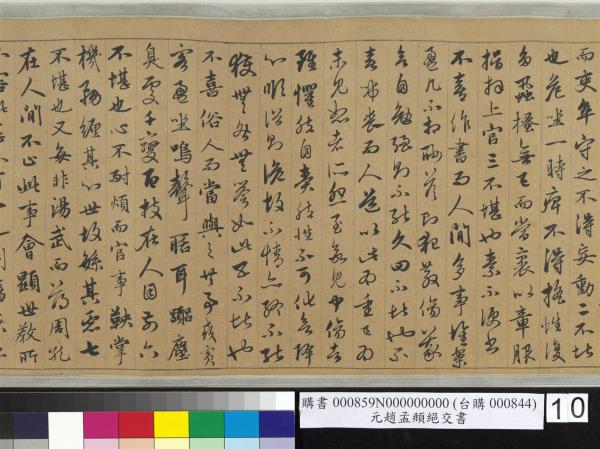 而吏卒守之不得妄動二不堪
也危坐一時痺不得搖性復
多蝨搔無已而當裹以章服
揖拜上官三不堪也素不便書
不喜作書而人間多事堆案
盈几不相酬答則犯教傷義
欲自勉強則不能久四不堪也不
喜弔喪而人道以此為重已為
未見恕者所怨至欲見中傷者
雖懼然自責然性不可化欲降
心順俗則詭故不情亦終不能
獲無咎無譽如此五不堪也
不喜俗人而當與之共事或賓
客盈坐鳴聲聒耳囂塵
臭處千變百技在人目前六
不堪也心不耐煩而官事鞅掌
機務纏其心世故繁其慮七
不堪也又每非湯武而薄周孔
在人間不止此事會顯世教所
購書 000859N000000000 (台購 000844)
元趙孟頫絕交書
10